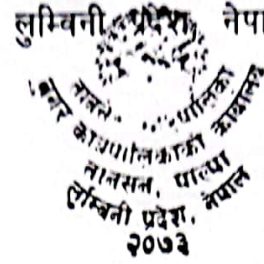 लुम्बिनी प्रदेश, नेपा
नगर कार्यपालिकाको कार्यालय
तानसेन, पाल्पा
लुम्बिनी प्रदेश, नेपाल
२०७३